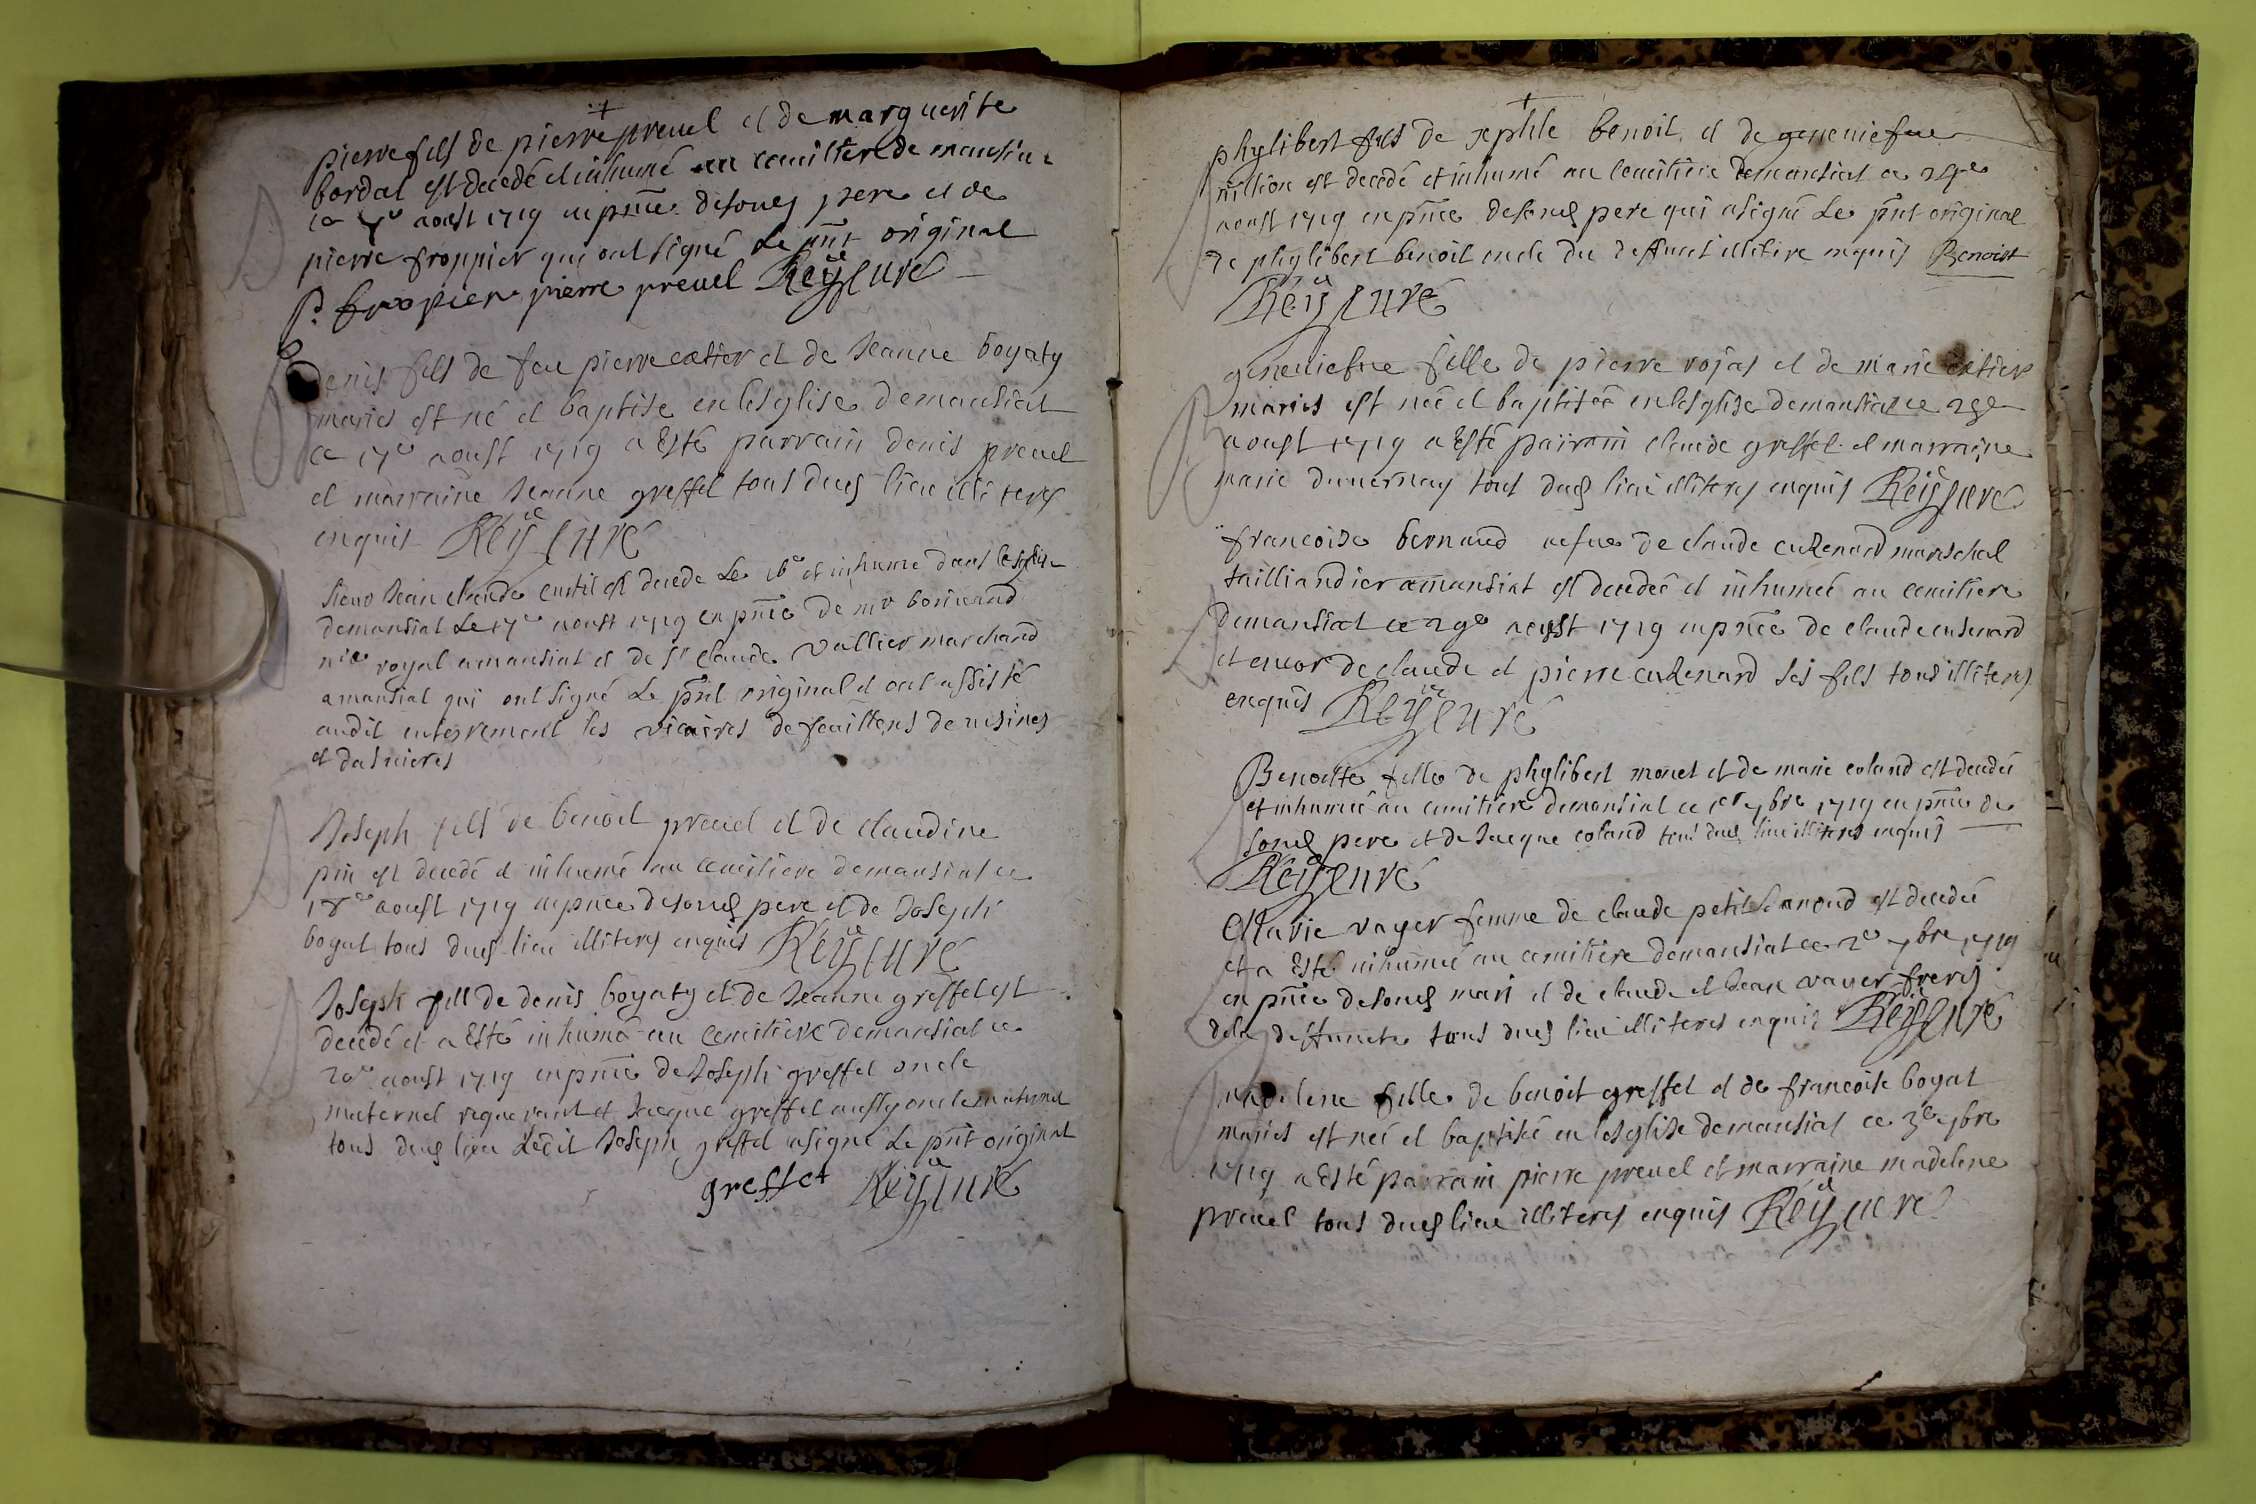 pierre fils de pierre preuel et de marguerite
bordat est decedé et inhumé au cemitiere de mansia
ce 7e aoust 1719 en pnce de soncj pere et de
pierre froppier qui ont signé Le pnt original
P. froopier pierre preuel Réÿ curé
Denis fils de feu pierre catier et de Jeanne boyaty
maries est né et baptise en lesglise demansiat
ce 17e aoust 1719 a Esté parrain denis preuel
et marraine Jeanne greffet tous ducj lieu illiteres
enquis Réÿ curé
Sieur Jean claude curtil est decede Le 16e et inhume dans lesglise
demansiat Le 17e aoust 1719 en pnce de me
nre royal a mansiat et de Sr claude vallier marchand
a mansiat qui ont signé Le pnt original et ont assisté
audit enterrement les vicaires de feuillens de
et dasnieres
Joseph fils de benoit preuel et de claudine
pin est decedé et inhumé au cemitiere demansiat ce
18e aoust 1719 en pnce de soncj pere et de Joseph
bogat tous ducj lieu illiteres enquis Réÿ curé
Joseph fils de denis boyaty et de Jeanne greffet est
decedé et a Esté inhumé au cemitiere demansiat ce
20e aoust 1719 en pnce de Joseph greffet oncle
maternel requerant et Jacque greffet aussy oncle maternel
tous ducj lieu Ledit Joseph greffet a signé Le pnt original
greffet Réÿ curé
phylibert fils de benoit et de geneuiefue
million est decedé et inhumé au cemitiere demansiat ce 24e
aoust 1719 en pnce de soncj pere qui a signé Le pnt original
De phylibert benoit oncle du deffunct illitere enquis Benoist
Réÿ curé
geneuiefue fille de pierre rojat et de marie catier
maries est née et baptisée en lesglise demansiat ce
aoust 1719 a Esté parrain claude greffet et marraine
marie duuernay tous ducj lieu illiteres enquis Réÿ curé
francoise bernaud uefue de claude cuRenard mareschal
tailliandier a mansiat est decedée et inhumée au cemitiere
demansiat ce 29e aoust 1719 en pnce de claude cuRenard
et encor de claude et pierre cuRenard ses fils tous illiteres
enquis Réÿ curé
Benoitte fille de phylibert monet et de marie coland est decedée
et inhumée au cemitiere demansiat ce 1er 7bre 1719 en pnce de
soncj pere et de Jacque coland tous ducj lieu illiteres enquis
Réÿ curé
Marie vayer femme de claude petit est decedée
et a Esté inhumée au cemitiere demansiat ce 2e 7bre 1719
en pnce de soncj mari et de claude et Jean vayer freres
dela deffuncte tous ducj lieu illiteres enquis Réÿ curé
madelene fille de benoit greffet et de francoise bogat
maries est née et baptisée en lesglise demansiat ce 3e 7bre
1719 a Esté parrain pierre preuel et marraine madelene
preuel tous ducj lieu illiteres enquis Réÿ curé